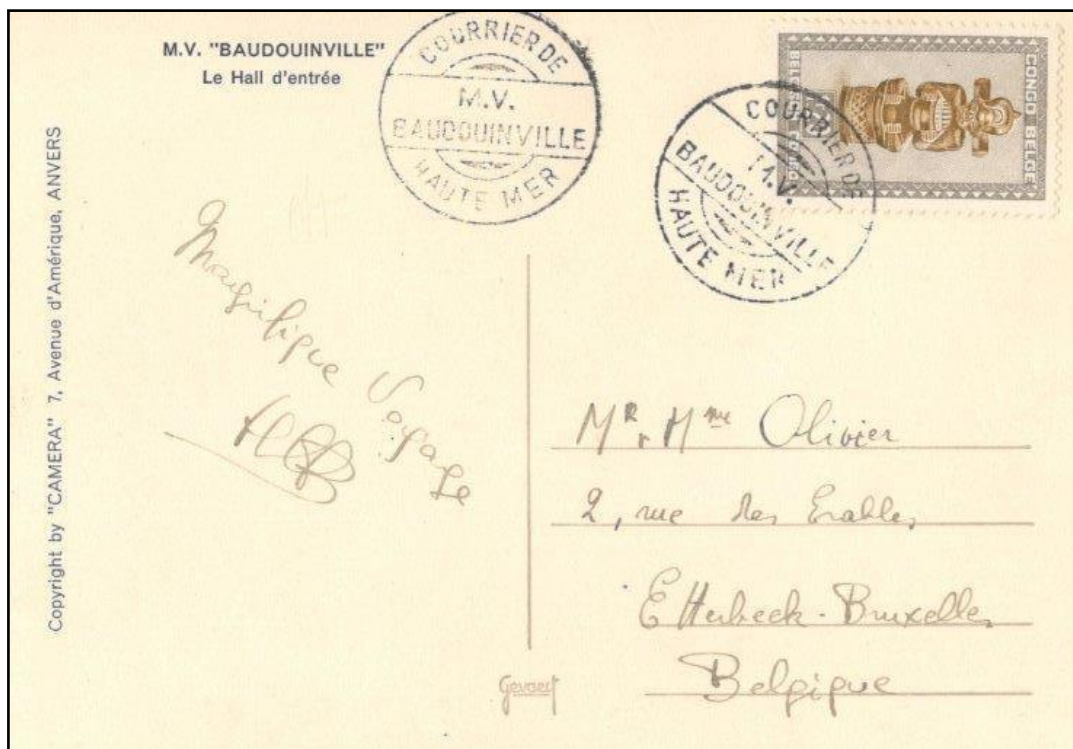 M.V. "BAUDOUINVILLE"
Le Hall d'entrée
COURRIER DE
M.V.
BAUDOUINVILLE
HAUTE MER
COURRIER DE
M.V.
BAUDOUINVILLE
HAUTE MER
CONGO BELGE
BELGISCH CONGO
Copyright by "CAMERA" 7, Avenue d'Amérique, ANVERS
Magnifique Voyage
Mr & Mme Olivier
2, rue des Erables
Etterbeek-Bruxelles
Belgique
Gevaert